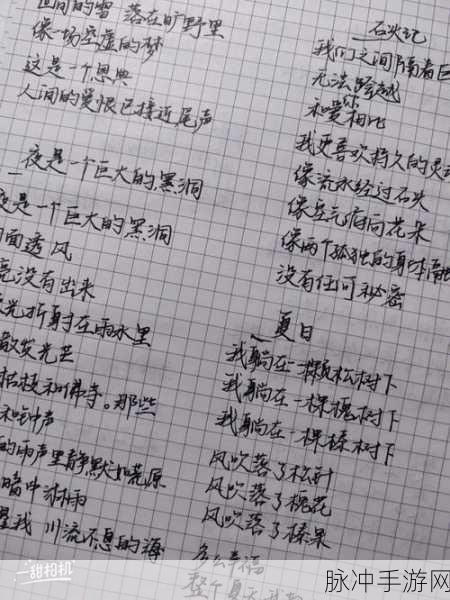 世间的雪 落在旷野里
像一场空虚的梦
这是一个恩典
人间的爱恨已接近尾声
夜是一个巨大的黑洞
夜是一个巨大的黑洞
面透风
亮没有出来
光折射在雨水里
散发光芒
枯枝和佛寺。那些
和钟声
的雨声里静默如荒原
暗中淋雨
川流不息的海
石头记
我们之间隔着巨
无法跨越
和爱相比
我更喜欢持久的灵
像流水经过石头
像星光落向花朵
像两个孤独的身体
没有任何秘密
夏日
我躺在一颗松树下
我躺在一棵槐树下
我躺在一棵榛树下
风吹落了松针
风吹落了槐花
风吹落了榛果
多么幸福
整个夏天
甜相机
脉冲手游网